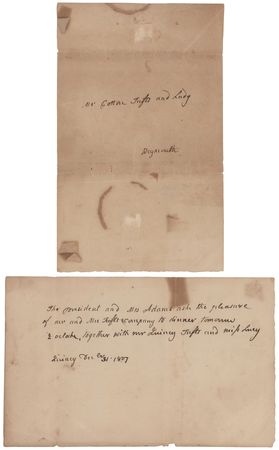 Mr Cotton Tufts and Lady
Weymouth
The President and Mrs Adams ask the pleasure
of mr and Mrs Tufts company to dinner tomorrow
together with mr Quincy Tufts and miss Lucy
Quincy Dec 31. 1827